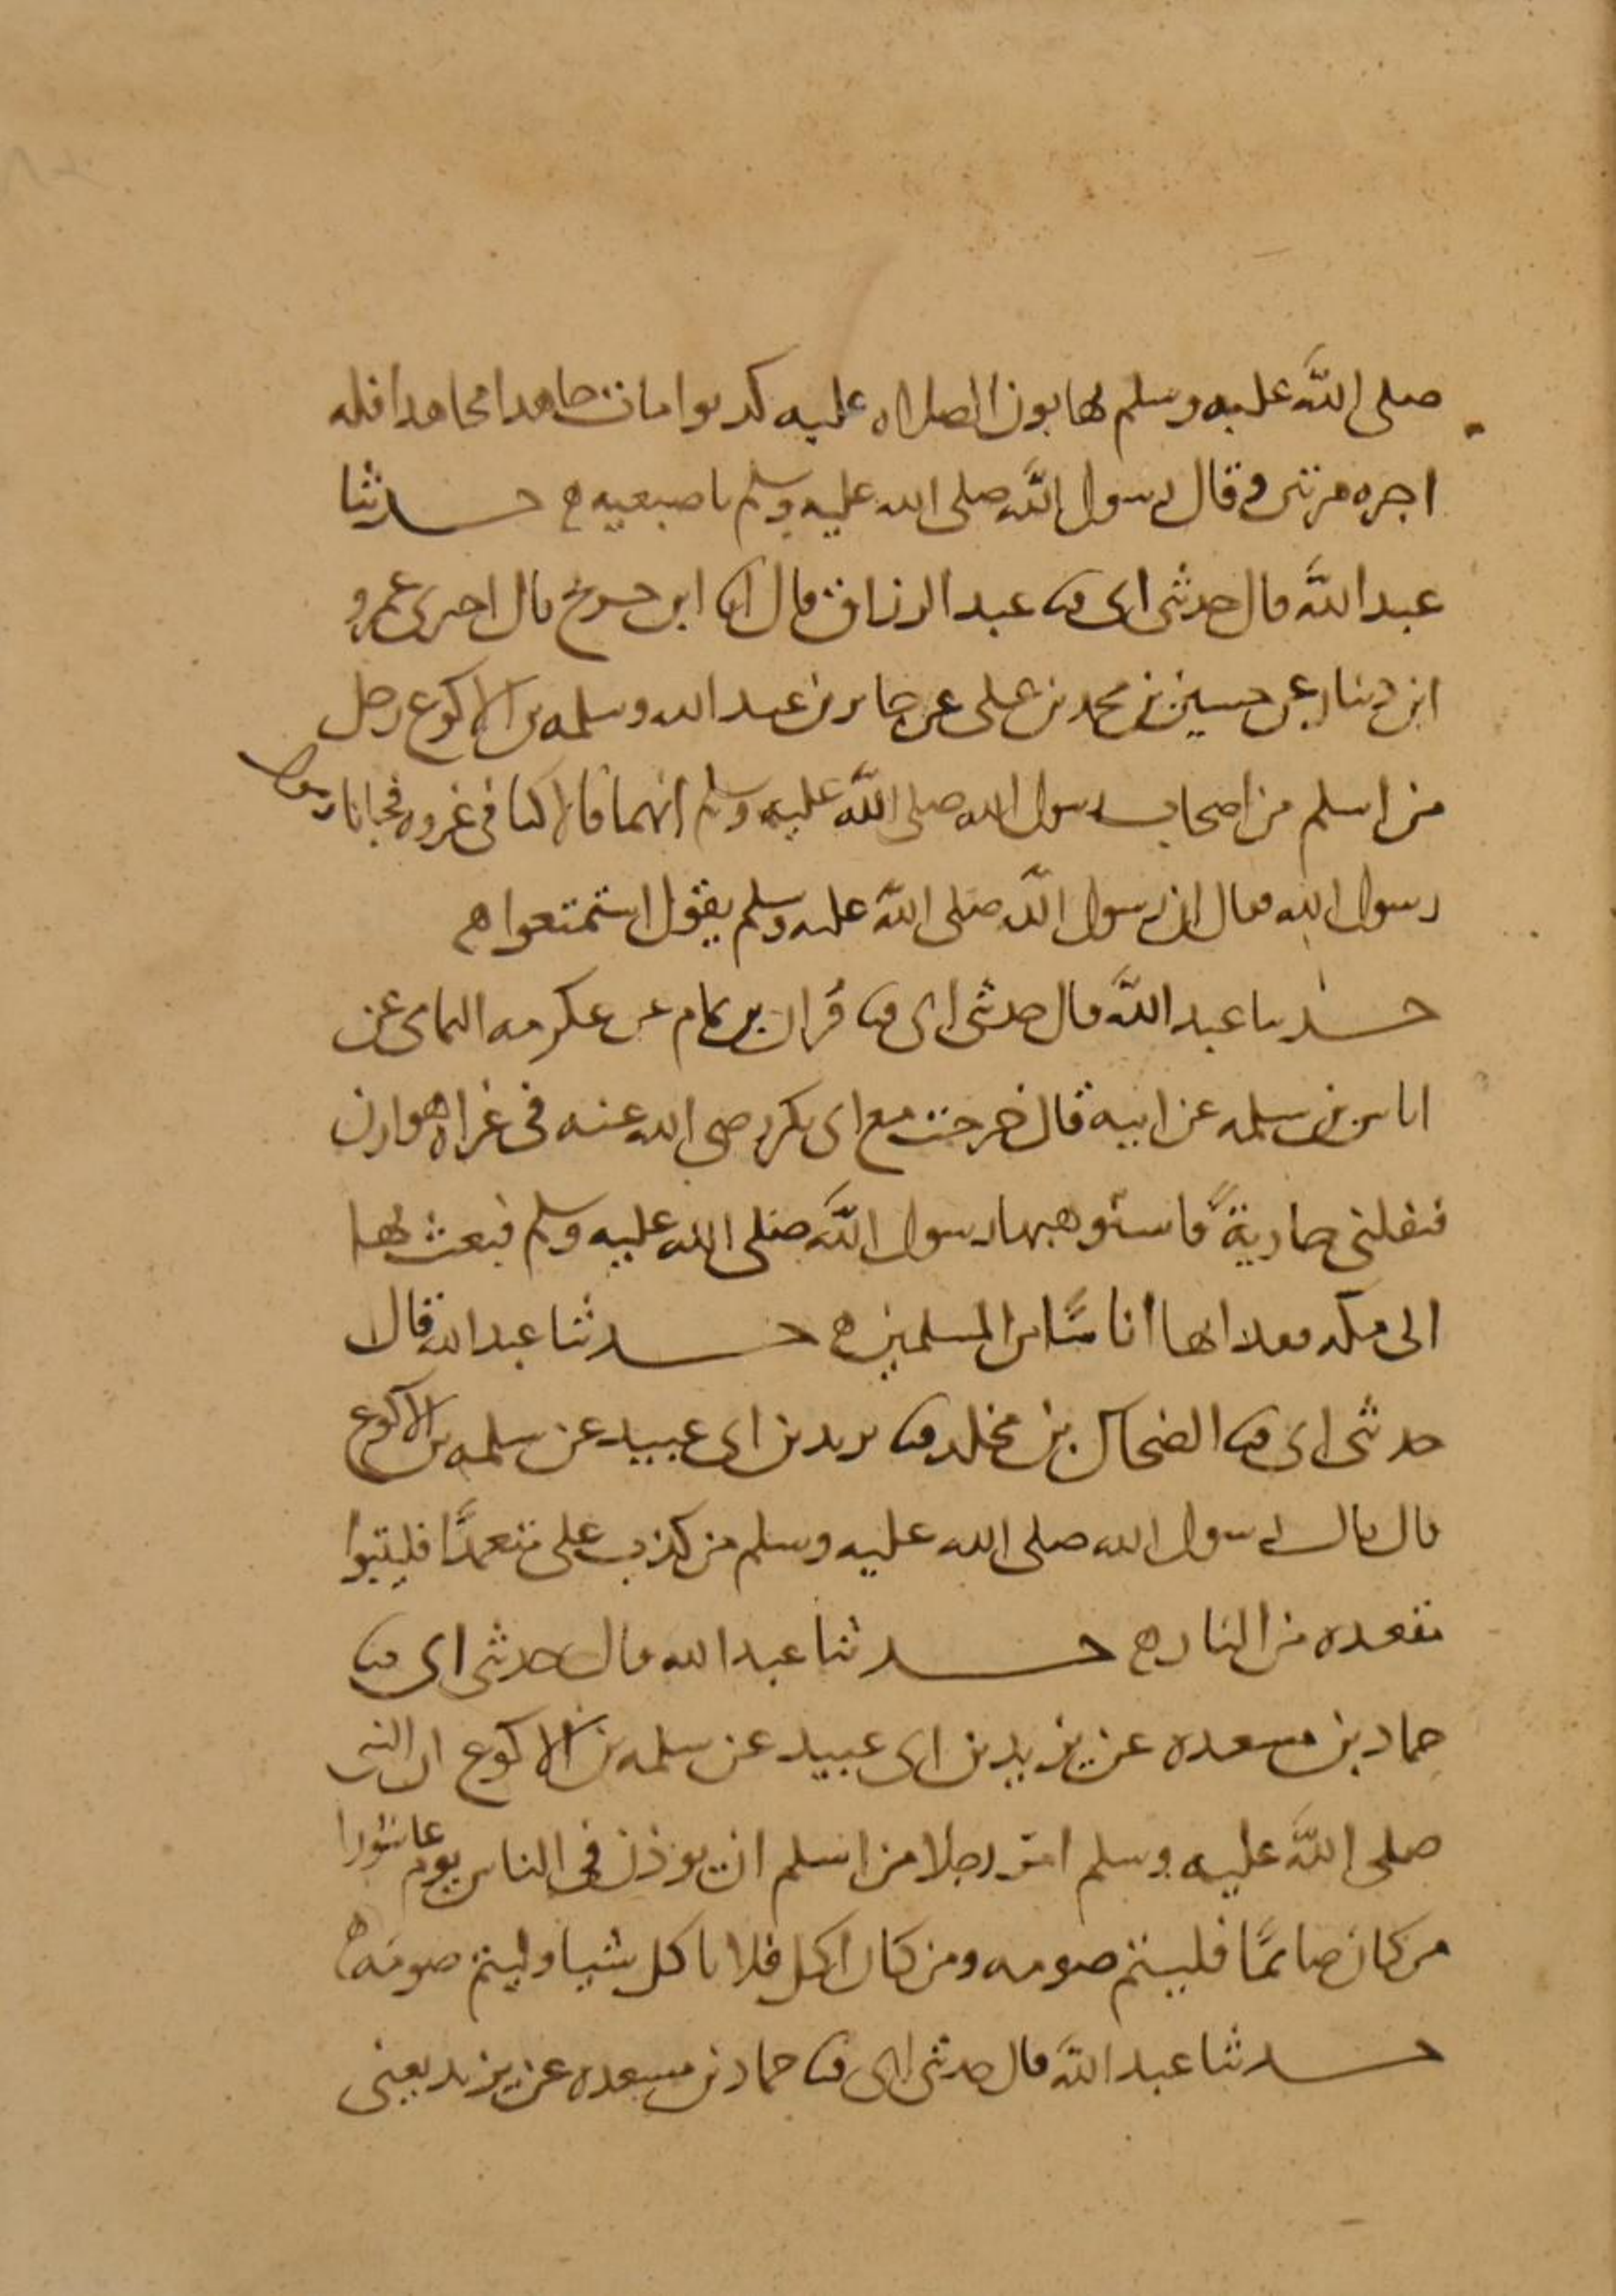 صلى الله عليه وسلم يهابون الصلاه عليه كذبوا مات جاهدا مجاهدا فله
اجره مرتين وقال رسول الله صلى الله عليه وسلم باصبعيه ه حدثنا
عبد الله قال حدثني ابي ثنا عبد الرزاق قال انا ابن جريج قال اخبرني عمرو
ابن دينار عن حسين بن محمد بن علي عن جابر بن عبد الله وسلمه بن الاكوع رجل
من اسلم من اصحاب رسول الله صلى الله عليه وسلم انهما قالا كنا في غزوه فجانا رسول
رسول الله فقال ان رسول الله صلى الله عليه وسلم يقول استمتعوا ه
حدثنا عبد الله قال حدثني ابي ثنا قران بن تمام عن عكرمه اليمامي عن
اياس بن سلمه عن ابيه قال خرجت مع ابي بكر رضي الله عنه في غزاه هوازن
فنفلني جاريةً فاستوهبها رسول الله صلى الله عليه وسلم فبعث بها
الى مكه ففدا بها اناسًا من المسلمين ه حدثنا عبد الله قال
حدثني ابي ثنا الضحاك بن مخلد ثنا يزيد بن ابي عبيد عن سلمه بن الاكوع
قال قال رسول الله صلى الله عليه وسلم من كذب على متعمدًا فليتبوا
مقعده من النار ه حدثنا عبد الله قال حدثني ابي ثنا
حماد بن مسعده عن يزيد بن ابي عبيد عن سلمه بن الاكوع ان النبي
صلى الله عليه وسلم امر رجلا من اسلم ان يوذن في الناس يوم عاشورا
من كان صائمًا فليتم صومه ومن كان اكل فلا ياكل شيا وليتم صومه ه
حدثنا عبد الله قال حدثني ابي ثنا حماد بن مسعده عن يزيد يعني